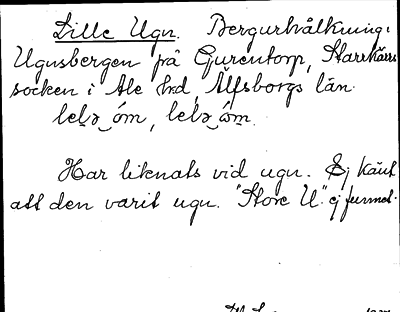 Lille Ugn. Bergurhålkning i
Ugnsbergen på Gurentorp, Starrkärrs
socken i Ale hd, Älfsborgs län.
Har liknats vid ugn. Ej känt
att den varit ugn. "Store U." ej funnet.